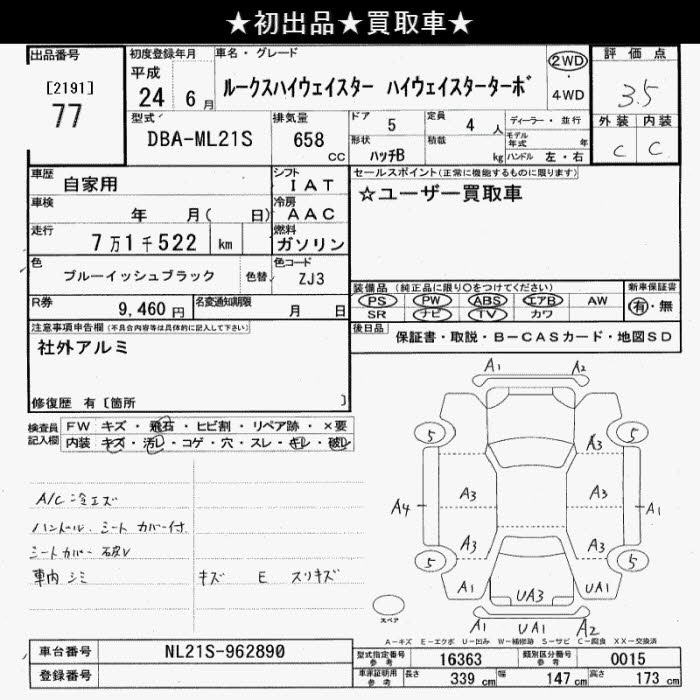 ★初出品★買取車★
出品番号 [2191] 77
初度登録年月 平成 24 6月
車名・グレード ルークスハイウェイスター ハイウェイスターターボ
2WD・4WD
評価点 3.5
外装 C 内装 C
型式 DBA-ML21S
排気量 658 cc
ドア 5 定員 4 人
形状 ハッチB 積載 kg
ディーラー・並行
モデル年式 年
ハンドル 左・右
車歴 自家用
シフト IAT
車検 年 月( 日)
冷房 AAC
走行 7万1千522 km
燃料 ガソリン
色 ブルーイッシュブラック 色替
色コード ZJ3
R券 9,460円 名変通知期限 月 日
セールスポイント(正常に機能するものに限り)
☆ユーザー買取車
装備品 (純正品に限り○をつけてください) 新車保証書
PS PW ABS エアB AW 有・無
SR ナビ TV カワ
後日品 保証書・取説・B-CASカード・地図SD
注意事項申告欄(不具合内容等は具体的に記入して下さい)
社外アルミ
修復歴 有〔箇所 〕
検査員記入欄 FW キズ・飛石・ヒビ割・リペア跡・×要
内装 キズ・汚レ・コゲ・穴・スレ・キレ・破レ
A/C 冷エズ
ハンドル、シートカバー付
シートカバー 破レ
車内 シミ キズ E スリキズ
A1 A2
5 5
A3
A4 A3 A3 A1
A3 A3
5 5
A1 UA3 UA1
A1 UA1 A2
スペア
A-キズ E-エクボ U-凹み W-補修跡 S-サビ C-腐食 XX-交換済
車台番号 NL21S-962890
登録番号
型式指定番号 参考 16363 類別区分番号 参考 0015
車庫証明用 参考 長さ 339 cm 幅 147 cm 高さ 173 cm